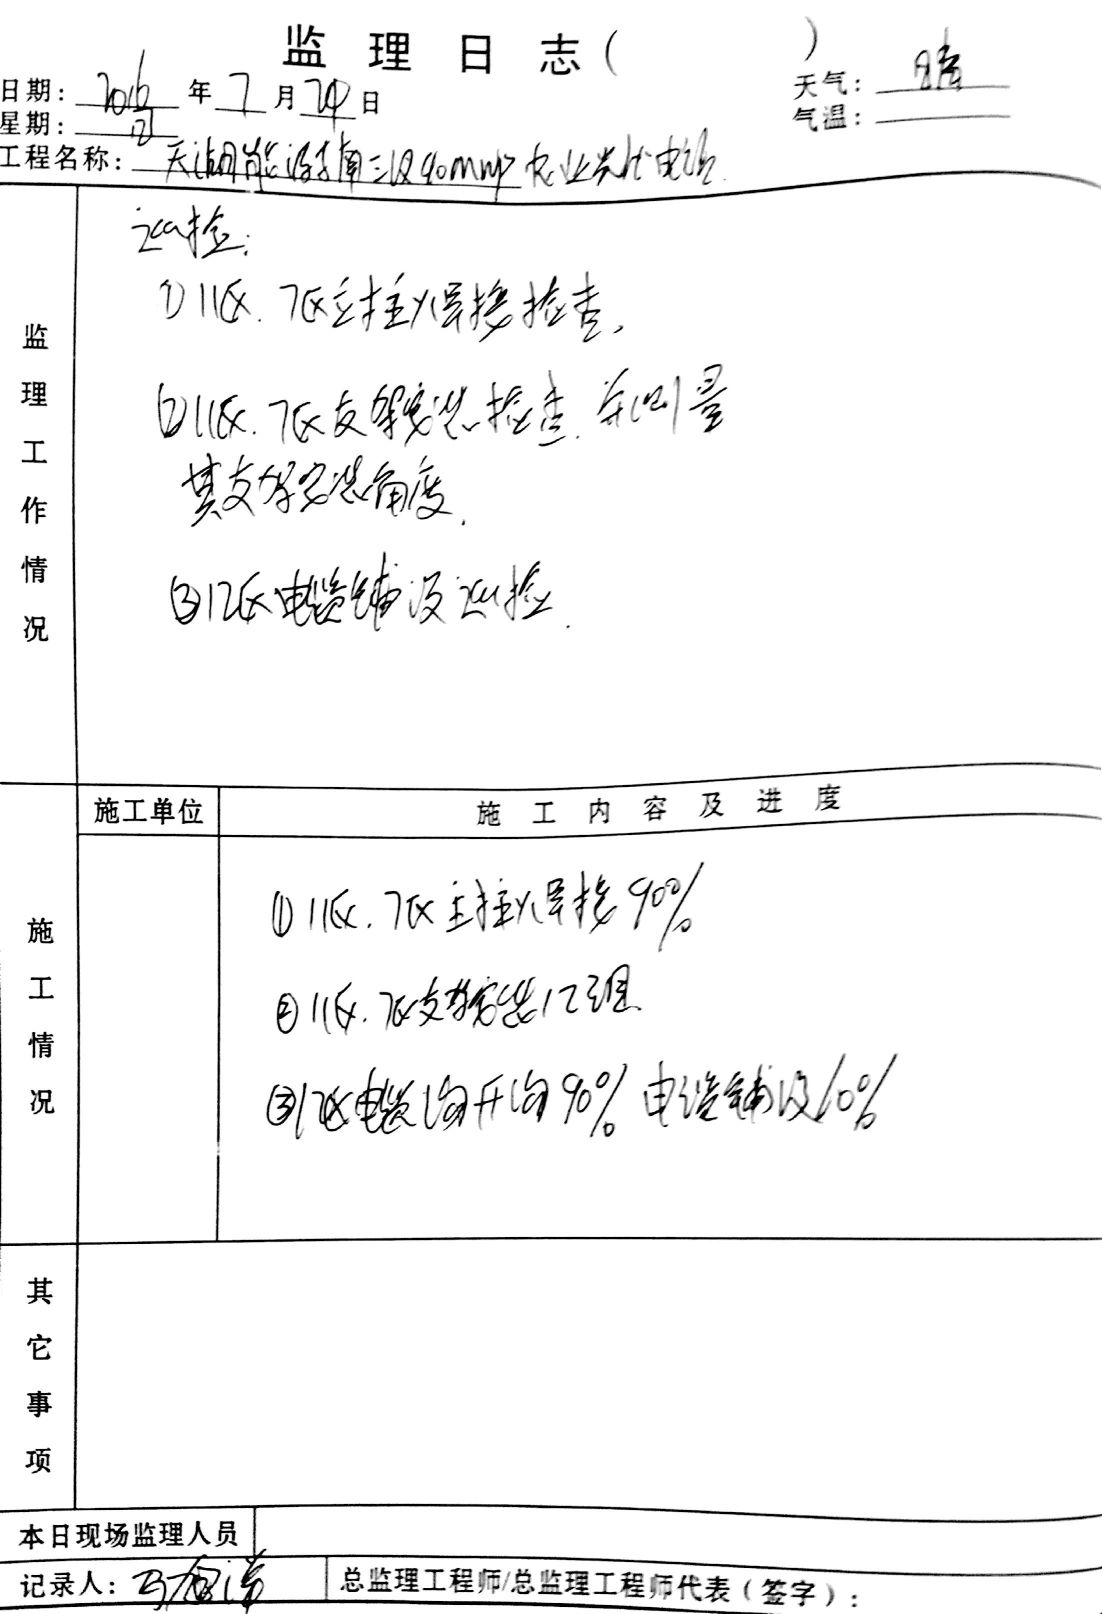 监理日志( )
日期: 2016 年 7 月 24 日
天气: 晴
星期:
气温:
工程名称: 三段40mwp农业光伏电站
监理工作情况
巡检:
①11区.7区立柱焊接检查.
②11区.7区支架安装检查.并测量
其支架安装角度.
③12区电缆铺设巡检.
施工单位
施工内容及进度
施工情况
①11区.7区立柱焊接90%
②11区.7区支架安装12组
③12区电缆沟开沟90% 电缆铺设10%
其它事项
本日现场监理人员
记录人:
总监理工程师/总监理工程师代表(签字):